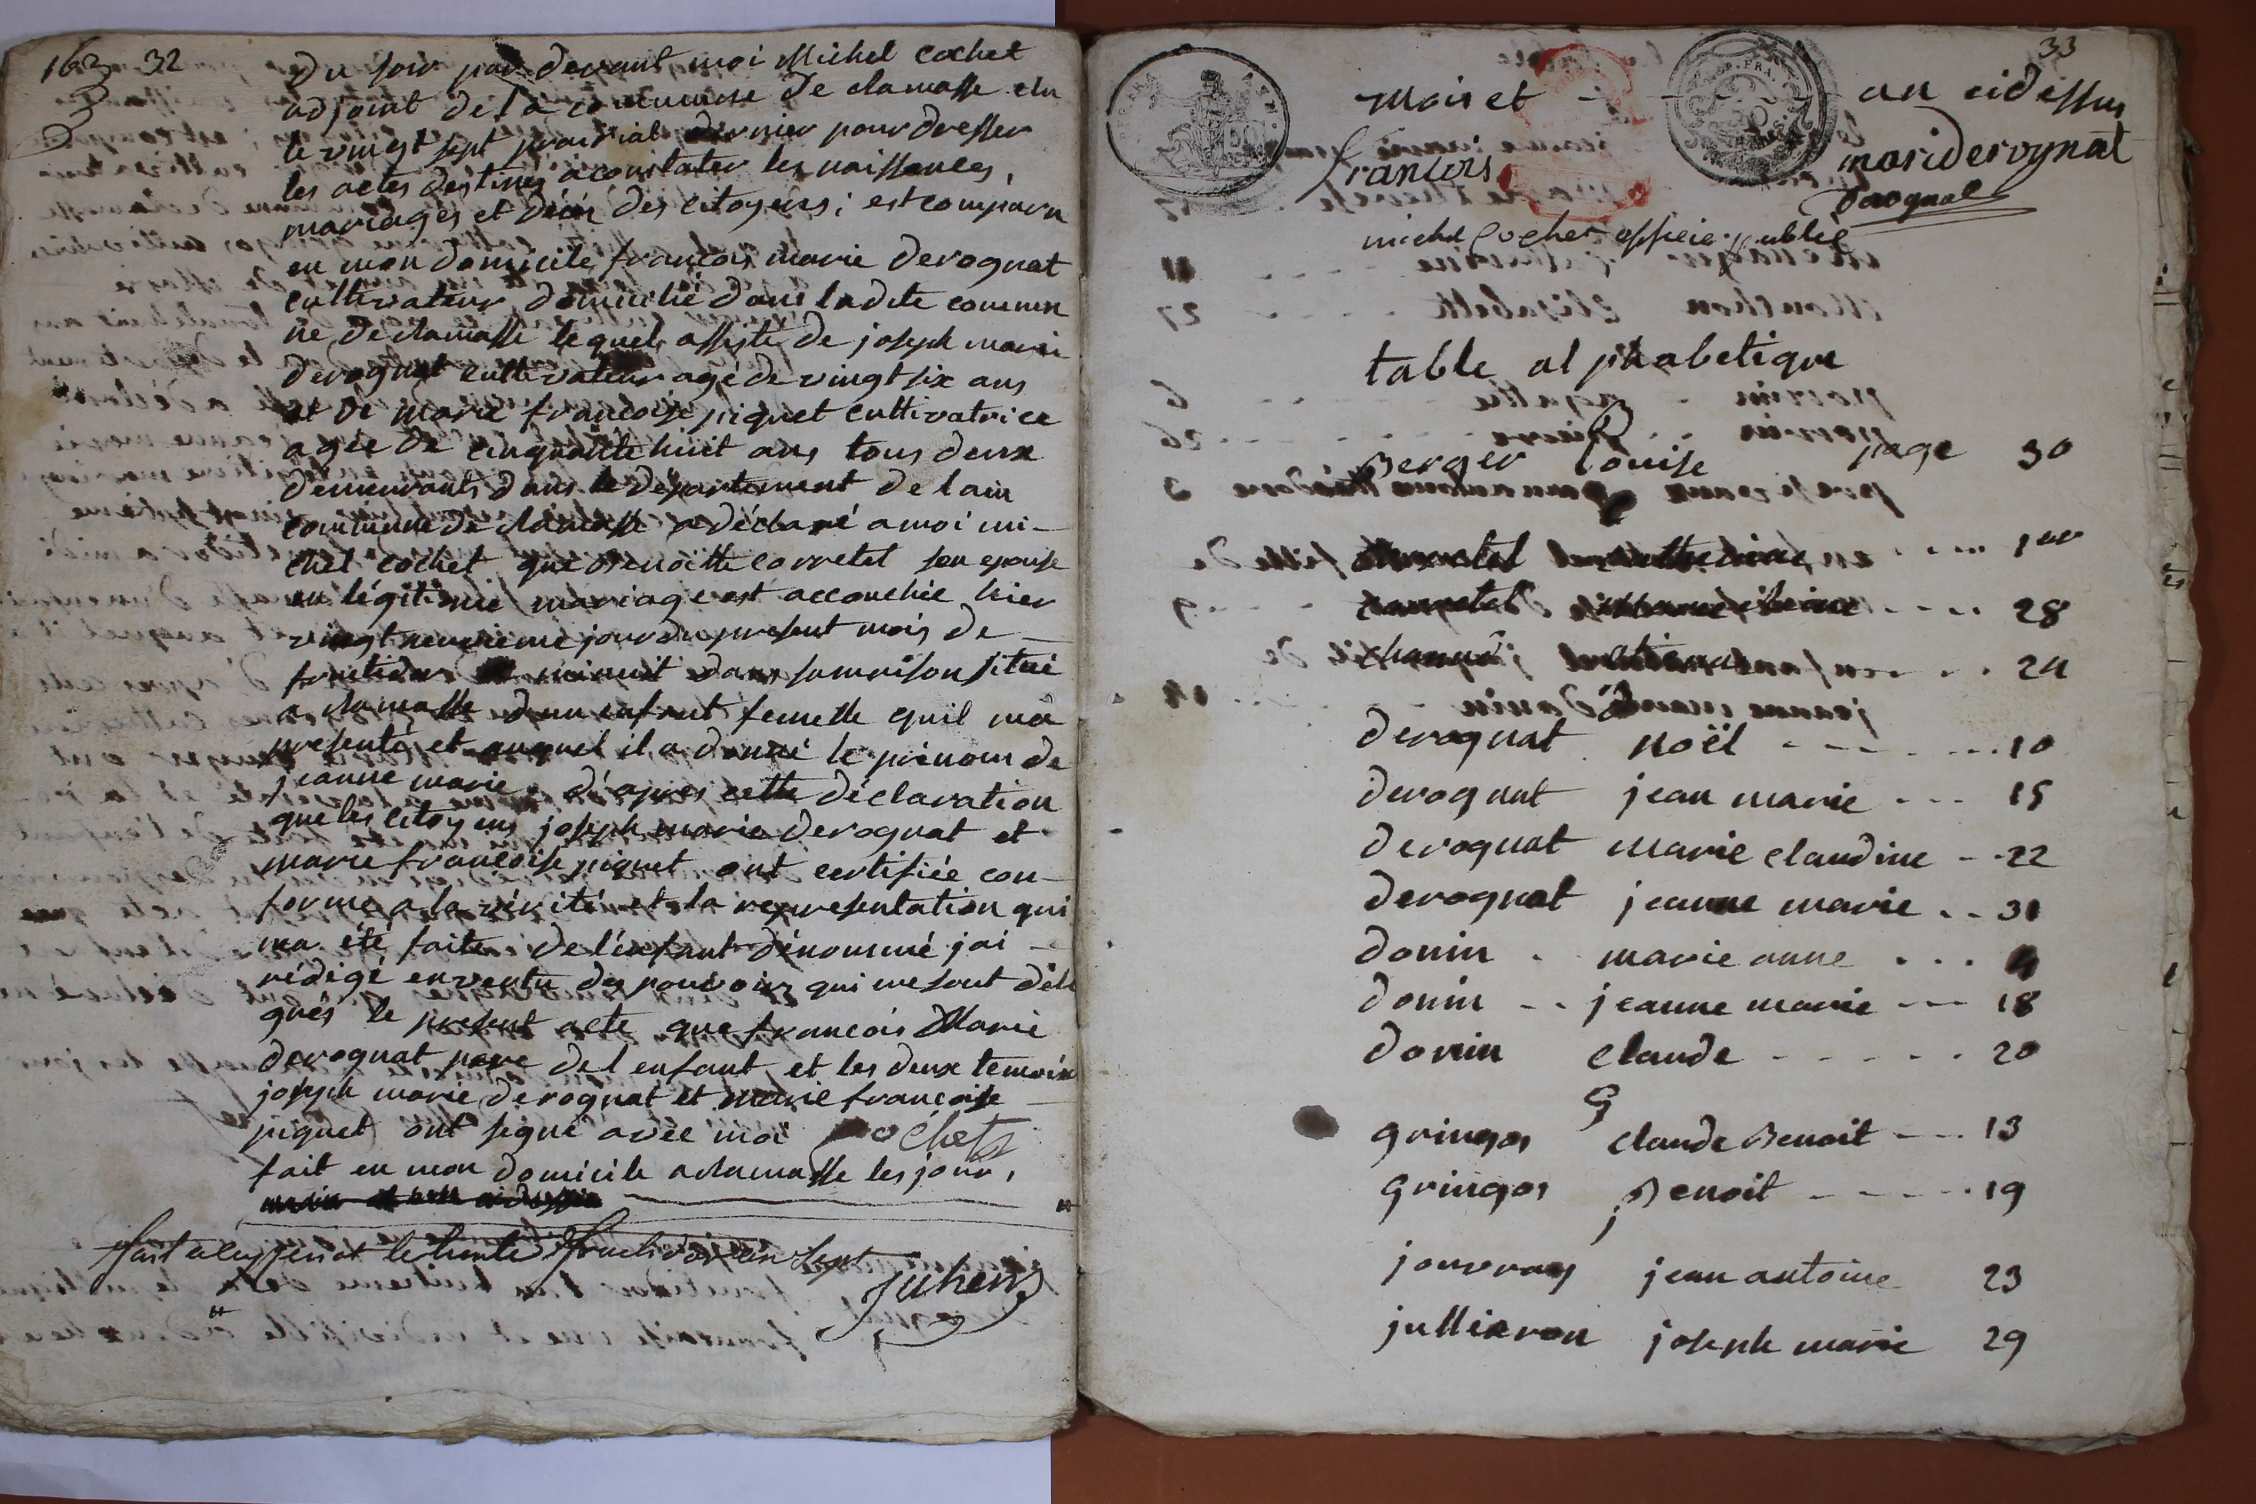 163 32
du soir par devant moi Michel cochet
adjoint de la commune de clamasse elu
le vingt sept prairial dernier pour dresser
les actes destinés a constater les naissances,
mariages et décés des citoyens; est comparu
en mon domicile francois marie derognat
cultivateur domicilié dans ladite commu
ne de clamasse lequel assisté de joseph marie
derognat cultivateur agé de vingt six ans
et de marie francoise piquet cultivatrice
agée de cinquante huit ans tous deux
demeurants dans le département de lain
commune de clamasse a déclaré a moi mi-
chel cochet que Benoitte corretet son epouse
en légitime mariage est accouchée hier
vingt neuvieme jour du present mois de
fructidor minuit dans sa maison située
a clamasse d'un enfant femelle quil ma
presenté et auquel il a donné le prénom de
jeanne marie. d'apres cette déclaration
que les citoyens joseph marie derognat et
marie francoise piquet ont certifiée con-
forme a la vérité et la representation qui
ma été faite de l'enfant dénommé jai
rédigé en vertu des pouvoirs qui me sont délé
gués le present acte que francois Marie
derognat pere de l enfant et les deux temoins
joseph marie derognat et marie francoise
piquet ont signé avec moi Cochet
fait en mon domicile a clamasse les jour,
mois et an cidessus
fait a leyssenat le trente fructidor an sept
Juhem
33
Mois et an cidessus
francois mariderognat
Daognal
michel Cochet officie public
table alphabetique
B
Berger Louise page 30
C
corretet catherine 1er
corretet 28
24
D
derognat Noël 10
derognat jean marie 15
derognat marie claudine 22
derognat jeanne marie 31
donin marie anne 4
donin jeanne marie 18
donin claude 20
G
gringos claude Benoit 13
gringos Benoit 19
j
jouvray jean antoine 23
jullieron joseph marie 29